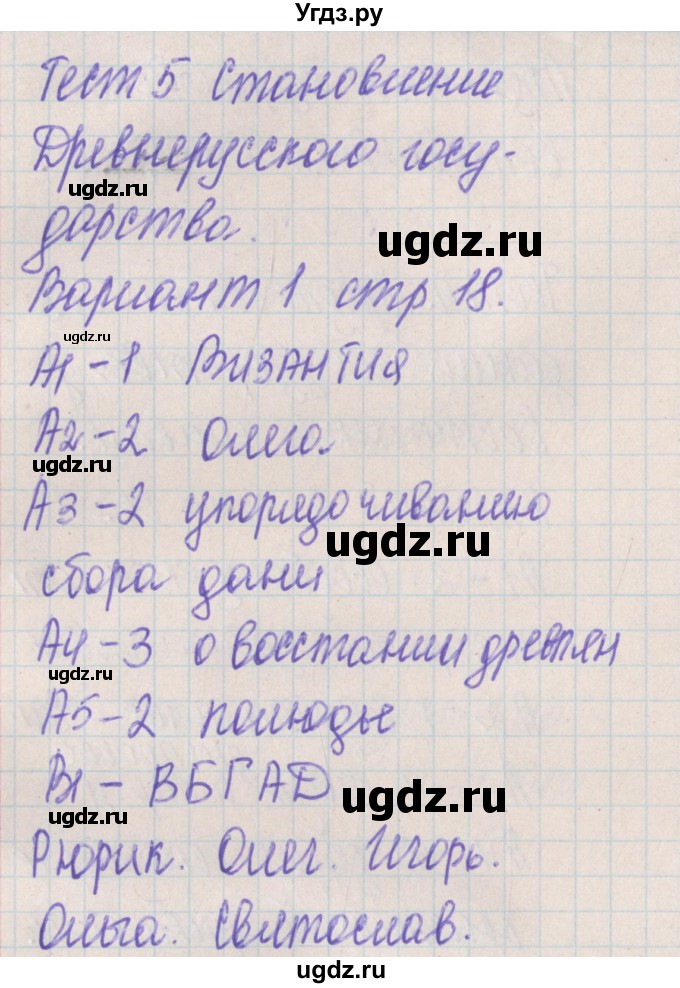 Угдз.ру
Тест 5 Становление
Древнерусского госу-
ugdz.ru
дарства.
ugdz.ru
Вариант 1 стр 18.
ugdz.ru
А1 - 1 ВИЗАНТИЯ
А2 - 2 Олега
ugdz.ru
А3 - 2 упорядочиванию
ugdz.ru
сбора дани
А4 - 3 о восстании древлян
ugdz.ru
А5 - 2 полюдье
В1 - ВБГАД
ugdz.ru
ugdz.ru
Рюрик. Олег. Игорь.
Ольга. Святослав.
ugdz.ru